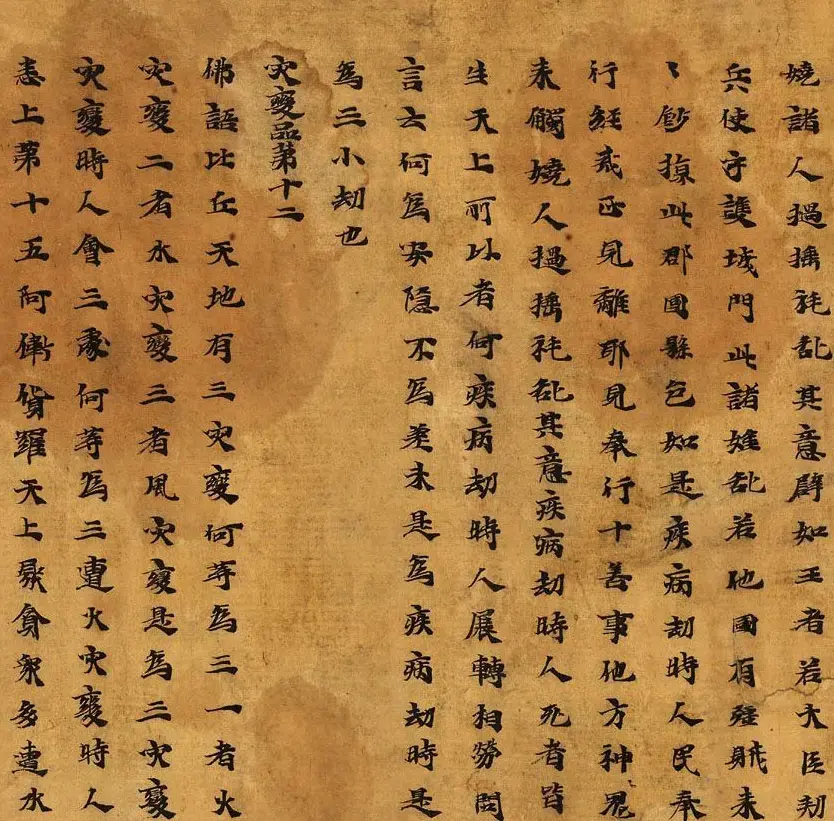 嬈諸人撾捶秏乱其意辟如王者若大臣劫
兵使守護城門此諸嬈乱若他國有强賊来
〻鈔掠此郡國縣邑如是疾病劫時人民奉
行經戒正見離耶見奉行十善事他方神鬼
来觸嬈人撾捶秏乱其意疾病劫時人死者皆
生天上所以者何疾病劫時人展轉相勞問
言云何為安隐不為差未是為疾病劫時是
為三小劫也
灾變品第十二
佛語比丘天地有三灾變何等為三一者火
灾變二者水灾變三者風灾變是為三灾變
灾變時人會三處何等為三遭火灾變時人
悉上第十五阿衛貨羅天上聚會眾多遭水